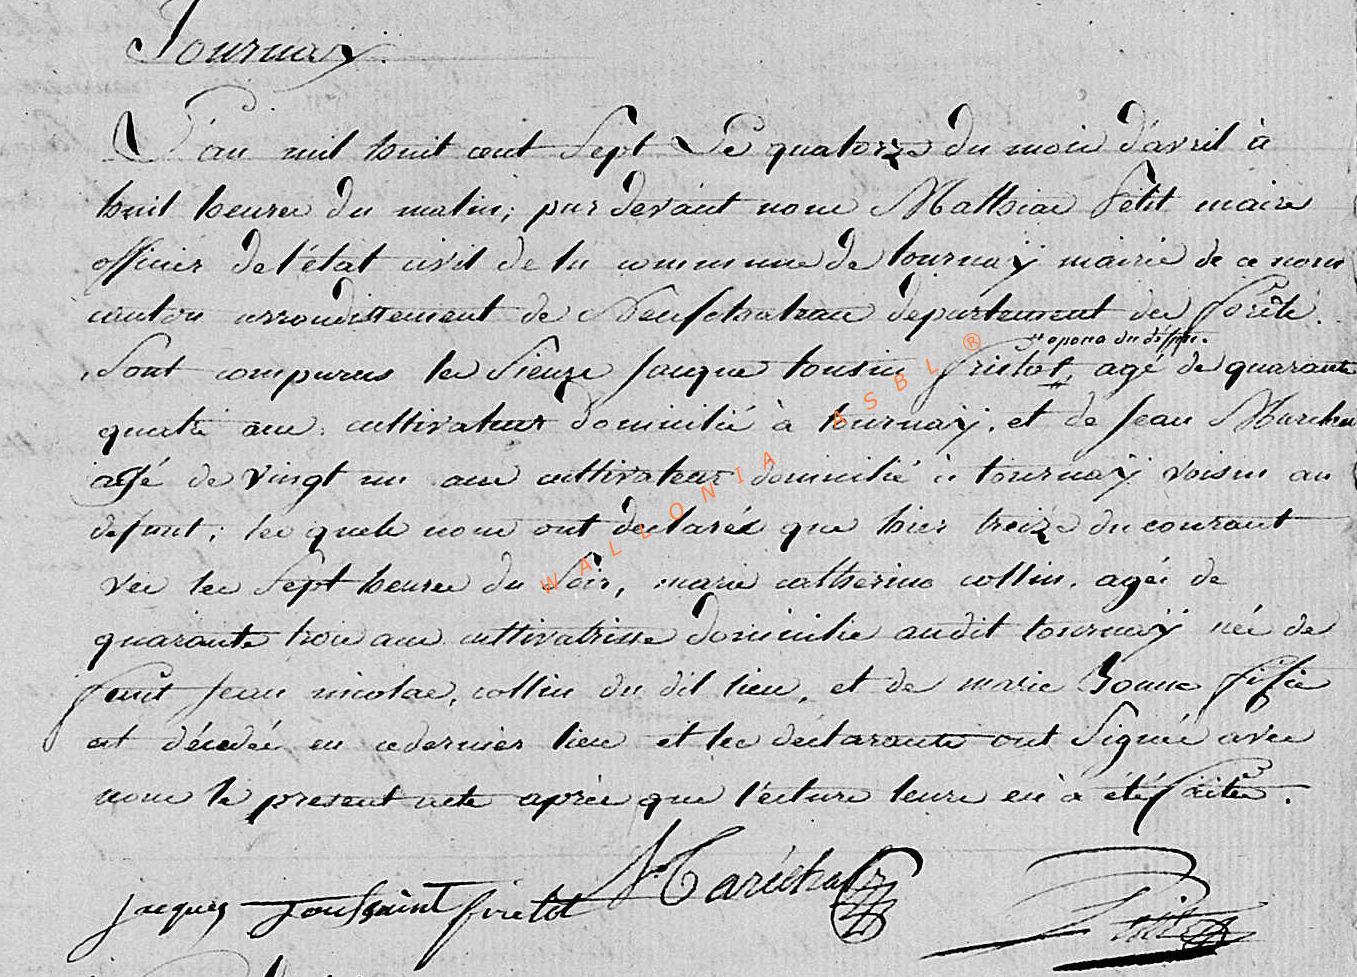 Tournay.
L'an mil huit cent sept Le quatorze du mois d'avril à
huit heures du matin; par devant nous Mathias Petit maire
officier de l'état civil de la commune de tournay mairie de ce nom
canton arrondissement de Neufchateau departement des forêts.
epoux du défun.
Sont comparus les Sieurs Jacque tousin firtot agé de quarante
quatre ans, cultivateur domicilié à tournay, et de Jean Marchal
agé de vingt un ans cultivateur domicilié à tournay voisin au
défunt; les quels nous ont declarés que hier treize du courant
ves les Sept heures du Soir, marie catherine collin, agée de
quarante trois ans cultivatrisse domicilie audit tournay née de
feut Jean nicolas, collin du dit lieu, et de marie Bonne
est décedée en cedernier lieu et les déclarants ont Signée avec
nous le present acte aprés que l'ecture leurs en à été faites.
jacques toussaint firtot
Maréchal
Petit
WALLONIA ASBL ®